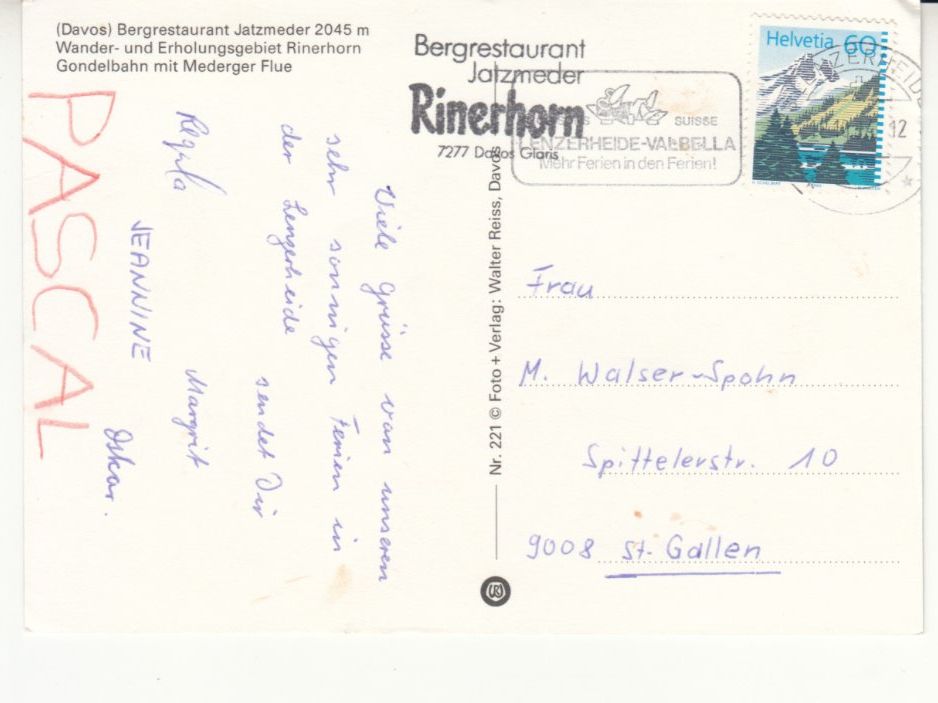 (Davos) Bergrestaurant Jatzmeder 2045 m
Wander- und Erholungsgebiet Rinerhorn
Gondelbahn mit Mederger Flue
Bergrestaurant
Jatzmeder
Rinerhorn
7277 Davos Glaris
SUISSE
LENZERHEIDE-VALBELLA
Mehr Ferien in den Ferien!
Helvetia 60
LENZERHEIDE
12
Viele Grüsse von unseren
sehr sonnigen Ferien in
der Lenzerheide
sendet Dir
Regula
Margrit
JEANNINE
Oskar.
PASCAL
Nr. 221 © Foto + Verlag: Walter Reiss, Davos
Frau
M. Walser-Spohn
Spittelerstr. 10
9008 St. Gallen